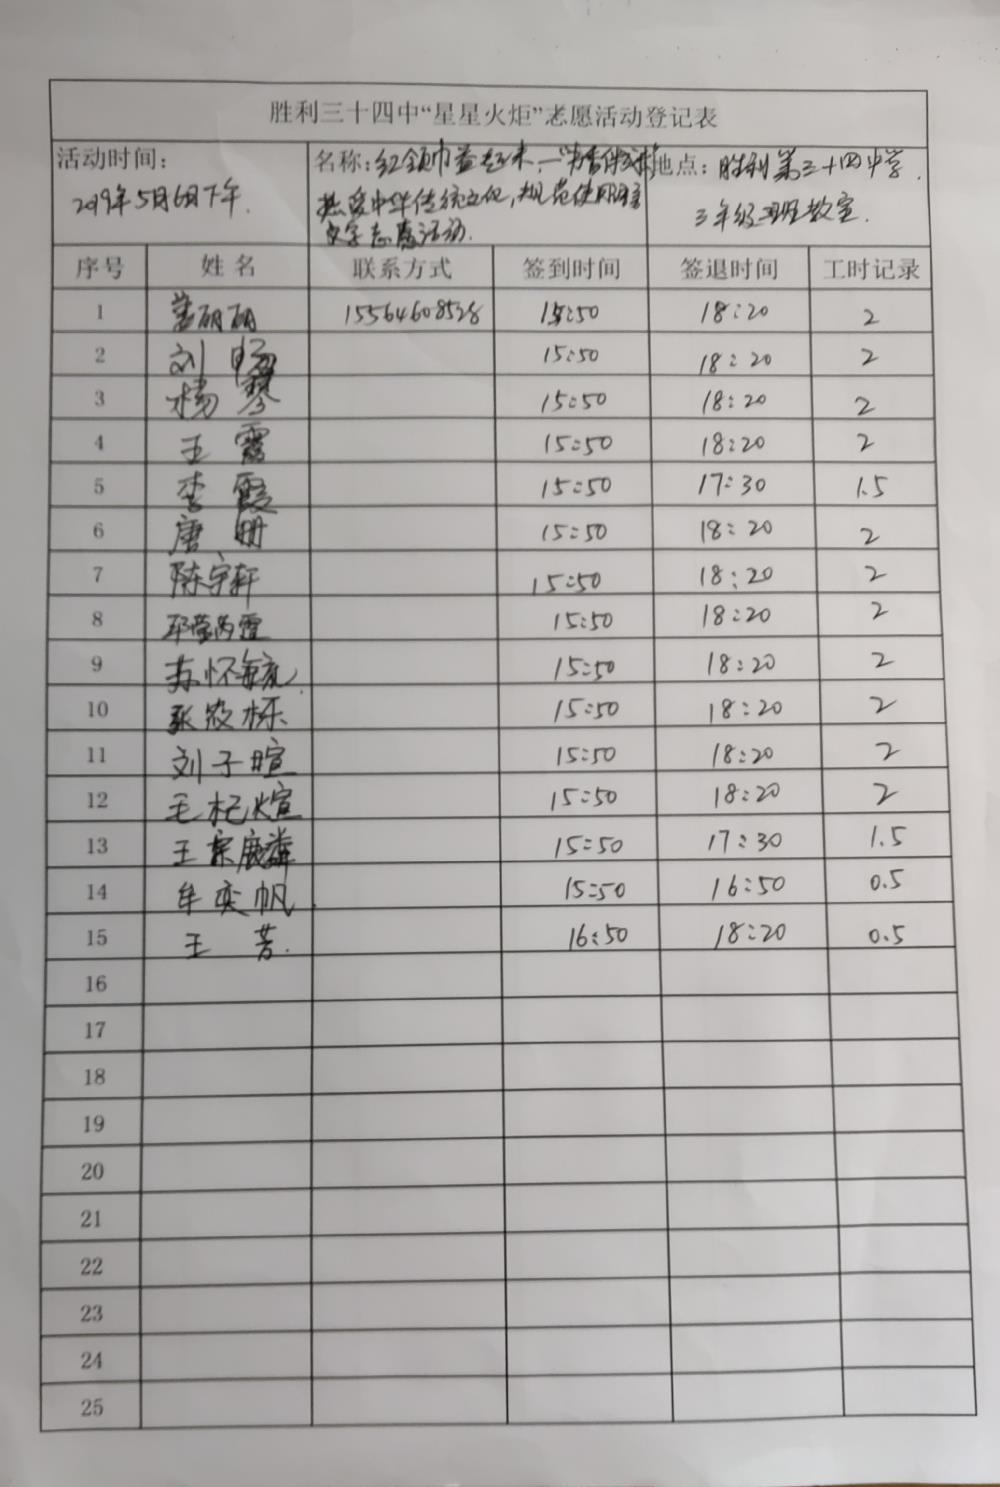 胜利三十四中“星星火炬”志愿活动登记表
活动时间：
2019年5月6日下午.
名称：红领巾益起来—“书香伴
热爱中华传统文化，规范使用
文字志愿活动.
地点：胜利第三十四中学.
三年级 班教室.
序号 姓名 联系方式 签到时间 签退时间 工时记录
1 丽丽 15564608528 15:50 18:20 2
2 刘 杨 15:50 18:20 2
3 杨 琴 15:50 18:20 2
4 王 霞 15:50 18:20 2
5 李 霞 15:50 17:30 1.5
6 唐 册 15:50 18:20 2
7 陈宇轩 15:50 18:20 2
8 15:50 18:20 2
9 苏怀毓 15:50 18:20 2
10 张 栎 15:50 18:20 2
11 刘子暄 15:50 18:20 2
12 毛杞煊 15:50 18:20 2
13 王宗麟 15:50 17:30 1.5
14 牟奕帆 15:50 16:50 0.5
15 王 芳. 16:50 18:20 0.5
16
17
18
19
20
21
22
23
24
25